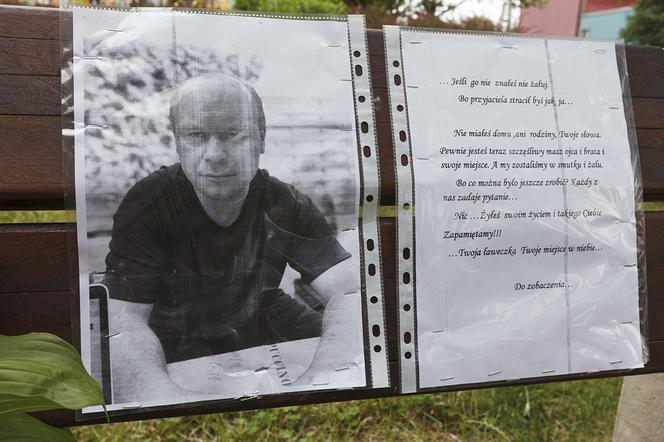 … Jeśli go nie znałeś nie żałuj.
Bo przyjaciela stracił byś jak, ja…
Nie miałeś domu ,ani rodziny, Twoje słowa.
Pewnie jesteś teraz szczęśliwy masz ojca i brata i
swoje miejsce. A my zostaliśmy w smutku i żalu.
Bo co można było jeszcze zrobić? Każdy z
nas zadaje pytanie…
Nic … Żyłeś swoim życiem i takiego Ciebie
Zapamiętamy!!!
…Twoja ławeczka Twoje miejsce w niebie…
Do zobaczenia…